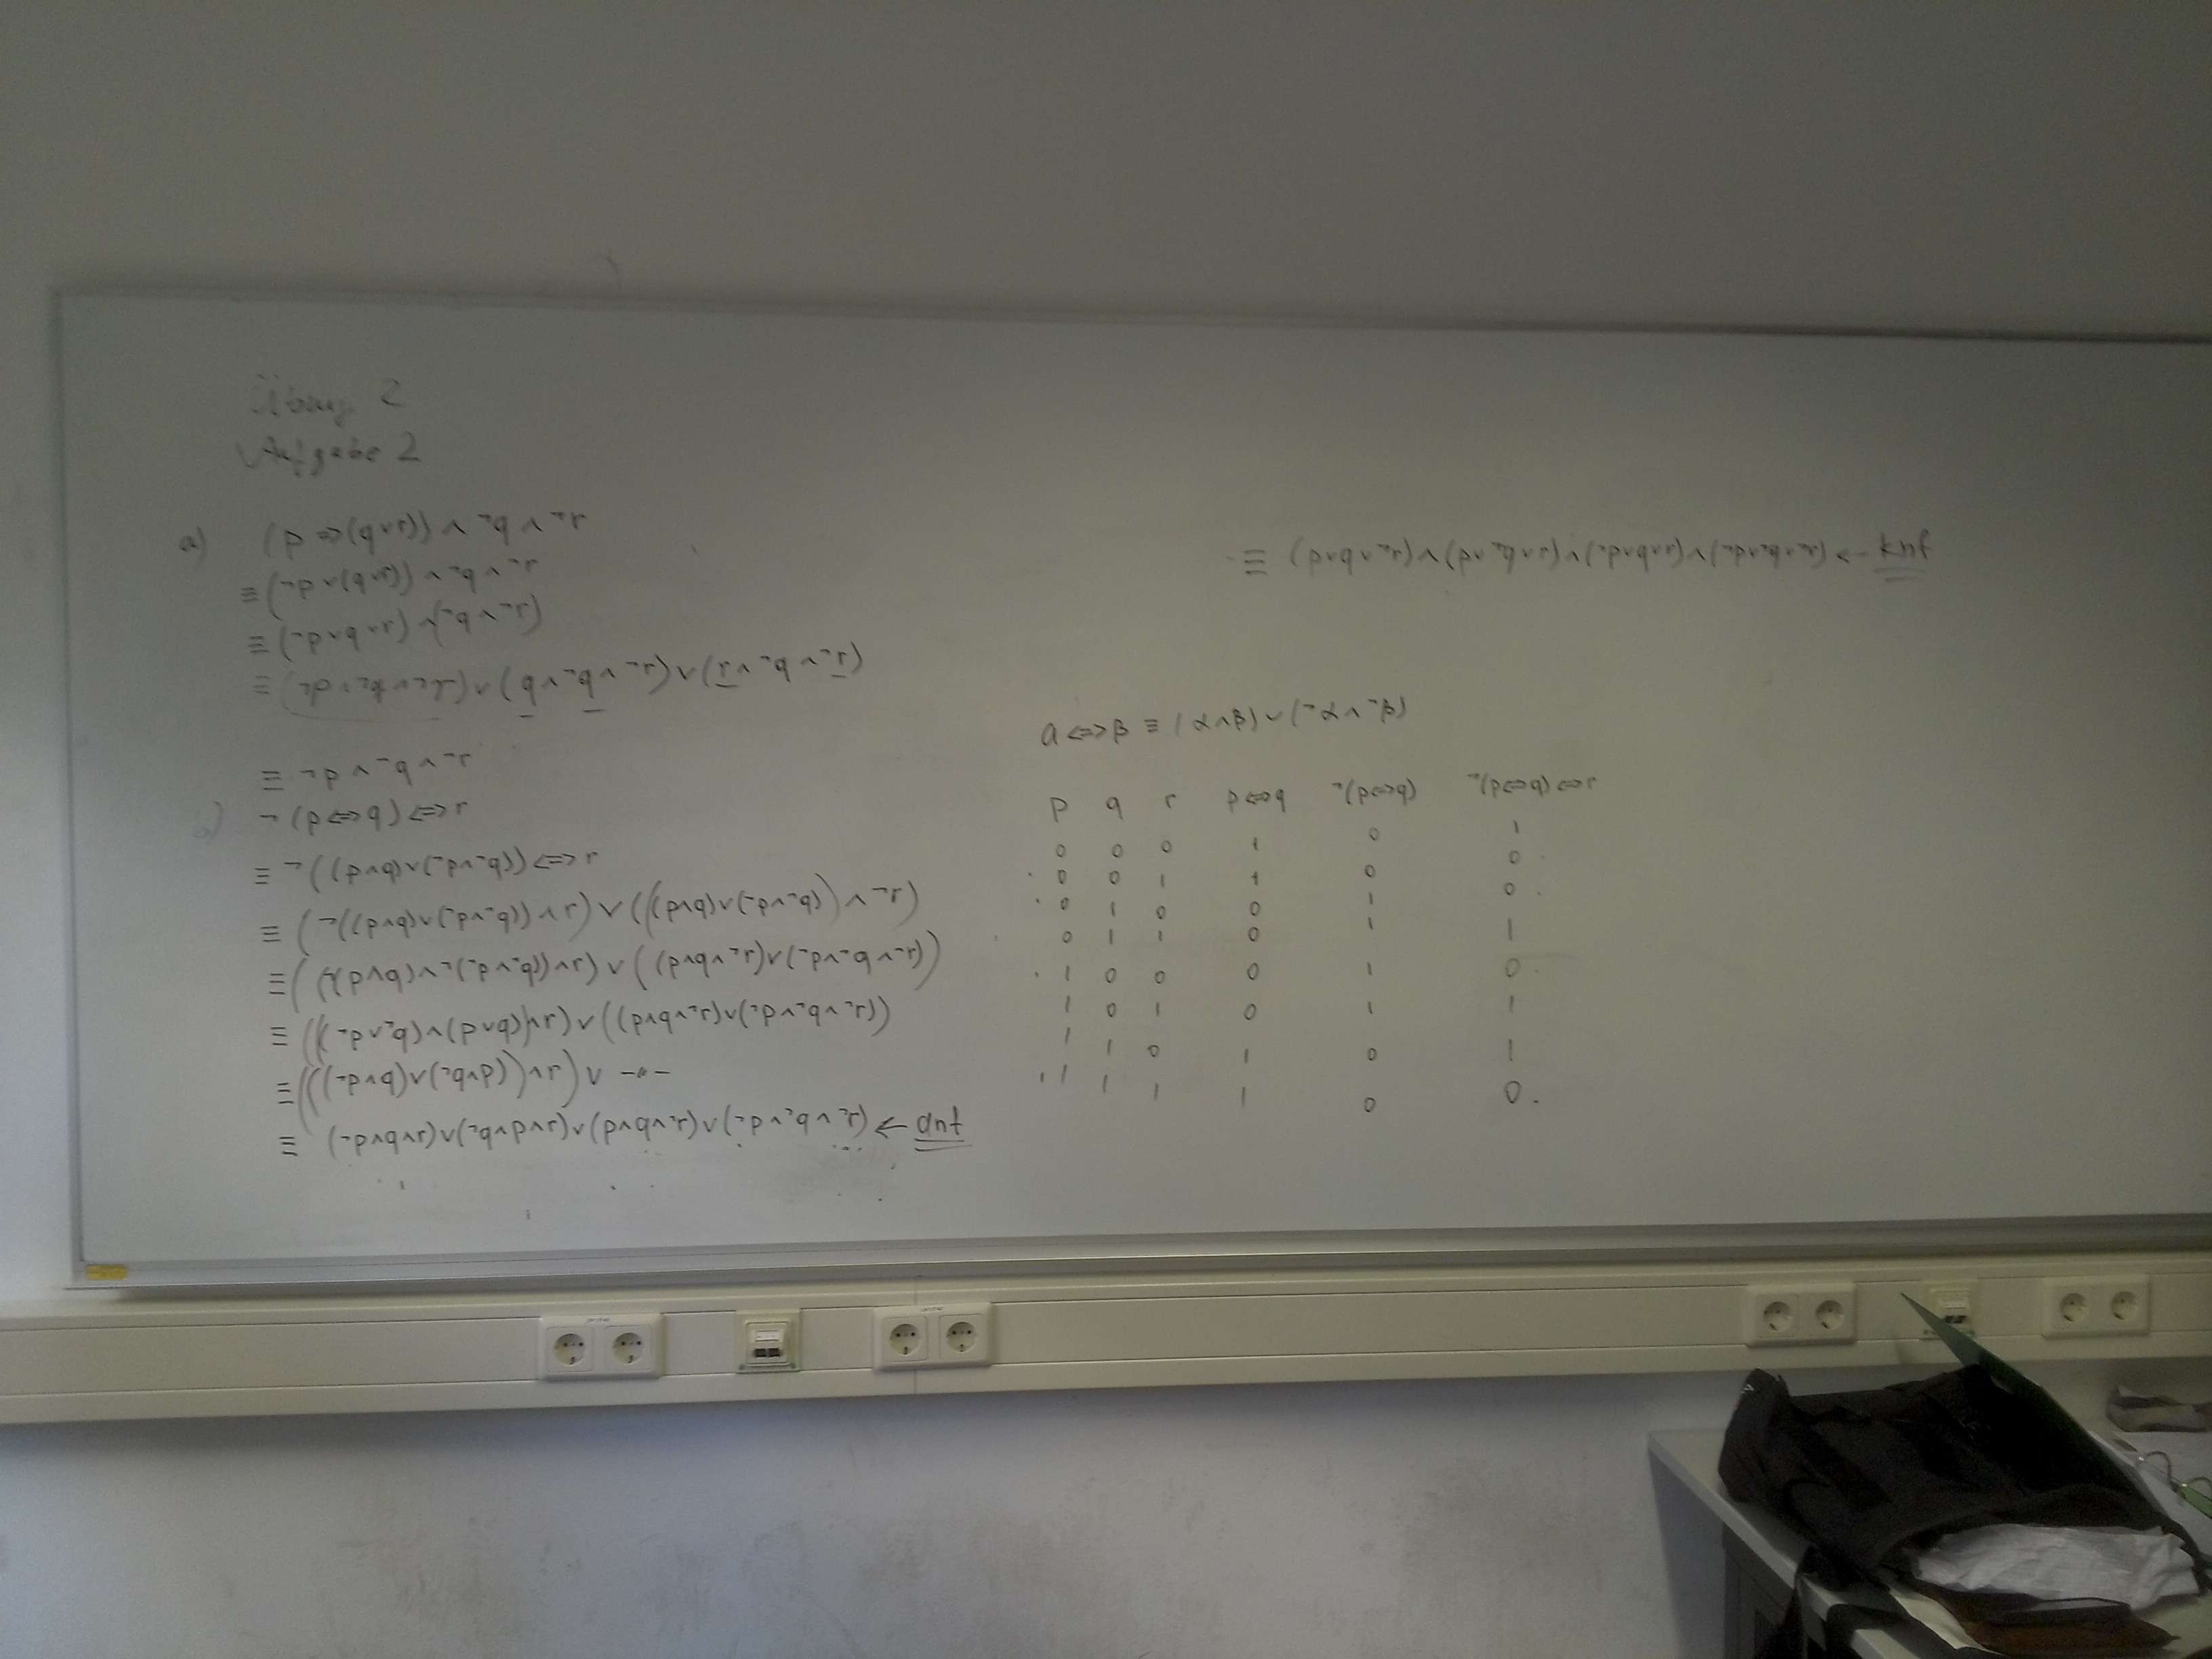 Übung 2
Aufgabe 2
a) (p ⇒ (q∨r)) ∧ ¬q ∧ ¬r
≡ (¬p ∨ (q∨r)) ∧ ¬q ∧ ¬r
≡ (¬p∨q∨r) ∧ (¬q ∧ ¬r)
≡ (¬p ∧ ¬q ∧ ¬r) ∨ (q ∧ ¬q ∧ ¬r) ∨ (r ∧ ¬q ∧ ¬r)
≡ ¬p ∧ ¬q ∧ ¬r
¬(p⇔q) ⇔ r
≡ ¬((p∧q)∨(¬p∧¬q)) ⇔ r
≡ (¬((p∧q)∨(¬p∧¬q)) ∧ r) ∨ (((p∧q)∨(¬p∧¬q)) ∧ ¬r)
≡ ((¬(p∧q)∧¬(¬p∧¬q))∧r) ∨ ((p∧q∧¬r)∨(¬p∧¬q∧¬r))
≡ (((¬p∨¬q)∧(p∨q))∧r) ∨ ((p∧q∧¬r)∨(¬p∧¬q∧¬r))
≡ (((¬p∧q)∨(¬q∧p))∧r) ∨ -"-
≡ (¬p∧q∧r)∨(¬q∧p∧r)∨(p∧q∧¬r)∨(¬p∧¬q∧¬r) ← dnf
≡ (p∨q∨¬r)∧(p∨¬q∨r)∧(¬p∨q∨r)∧(¬p∨¬q∨¬r) ← knf
α⇔β ≡ (α∧β)∨(¬α∧¬β)
p q r p⇔q ¬(p⇔q) ¬(p⇔q)⇔r
0 0 0 1 0 1
0 0 1 1 0 0
0 1 0 0 1 0
0 1 1 0 1 1
1 0 0 0 1 0
1 0 1 0 1 1
1 1 0 1 0 1
1 1 1 1 0 0